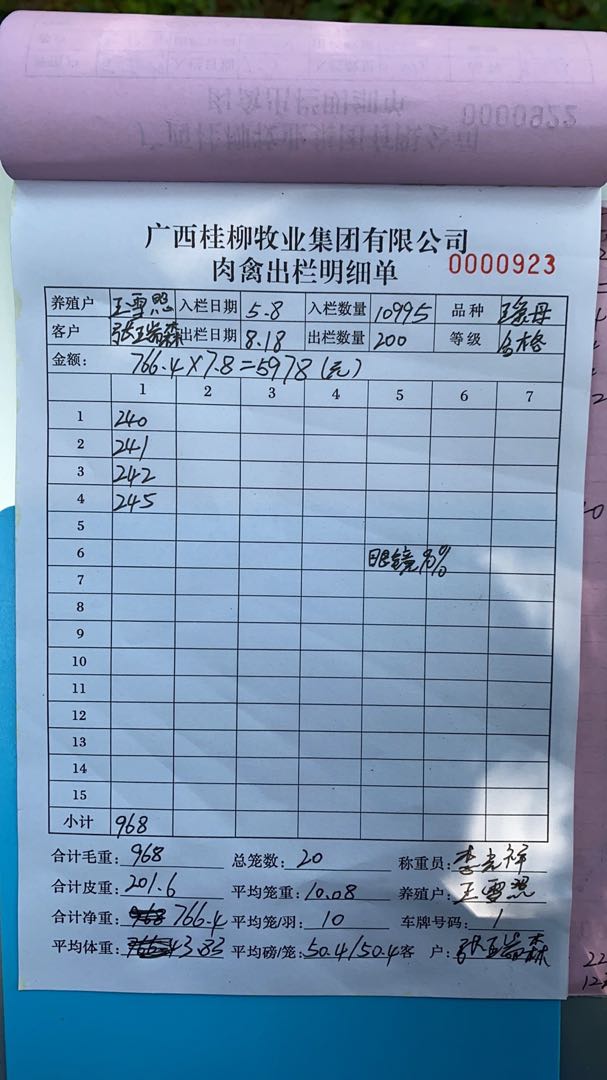 0000922
广西桂柳牧业集团有限公司
肉禽出栏明细单
0000923
养殖户 王雪照 入栏日期 5.8 入栏数量 10995 品种 瑶母
客户 出栏日期 8.18 出栏数量 200 等级 合格
金额: 766.4×7.8=5978(元)
1 2 3 4 5 6 7
1 240
2 241
3 242
4 245
5
6 眼镜90%
7
8
9
10
11
12
13
14
15
小计 968
合计毛重: 968 总笼数: 20 称重员: 李光祥
合计皮重: 201.6 平均笼重: 10.08 养殖户 王雪照
合计净重: 766.4 平均笼/羽: 10 车牌号码: 1
平均体重: 3.83 平均磅/笼: 50.4/50.4 客 户: